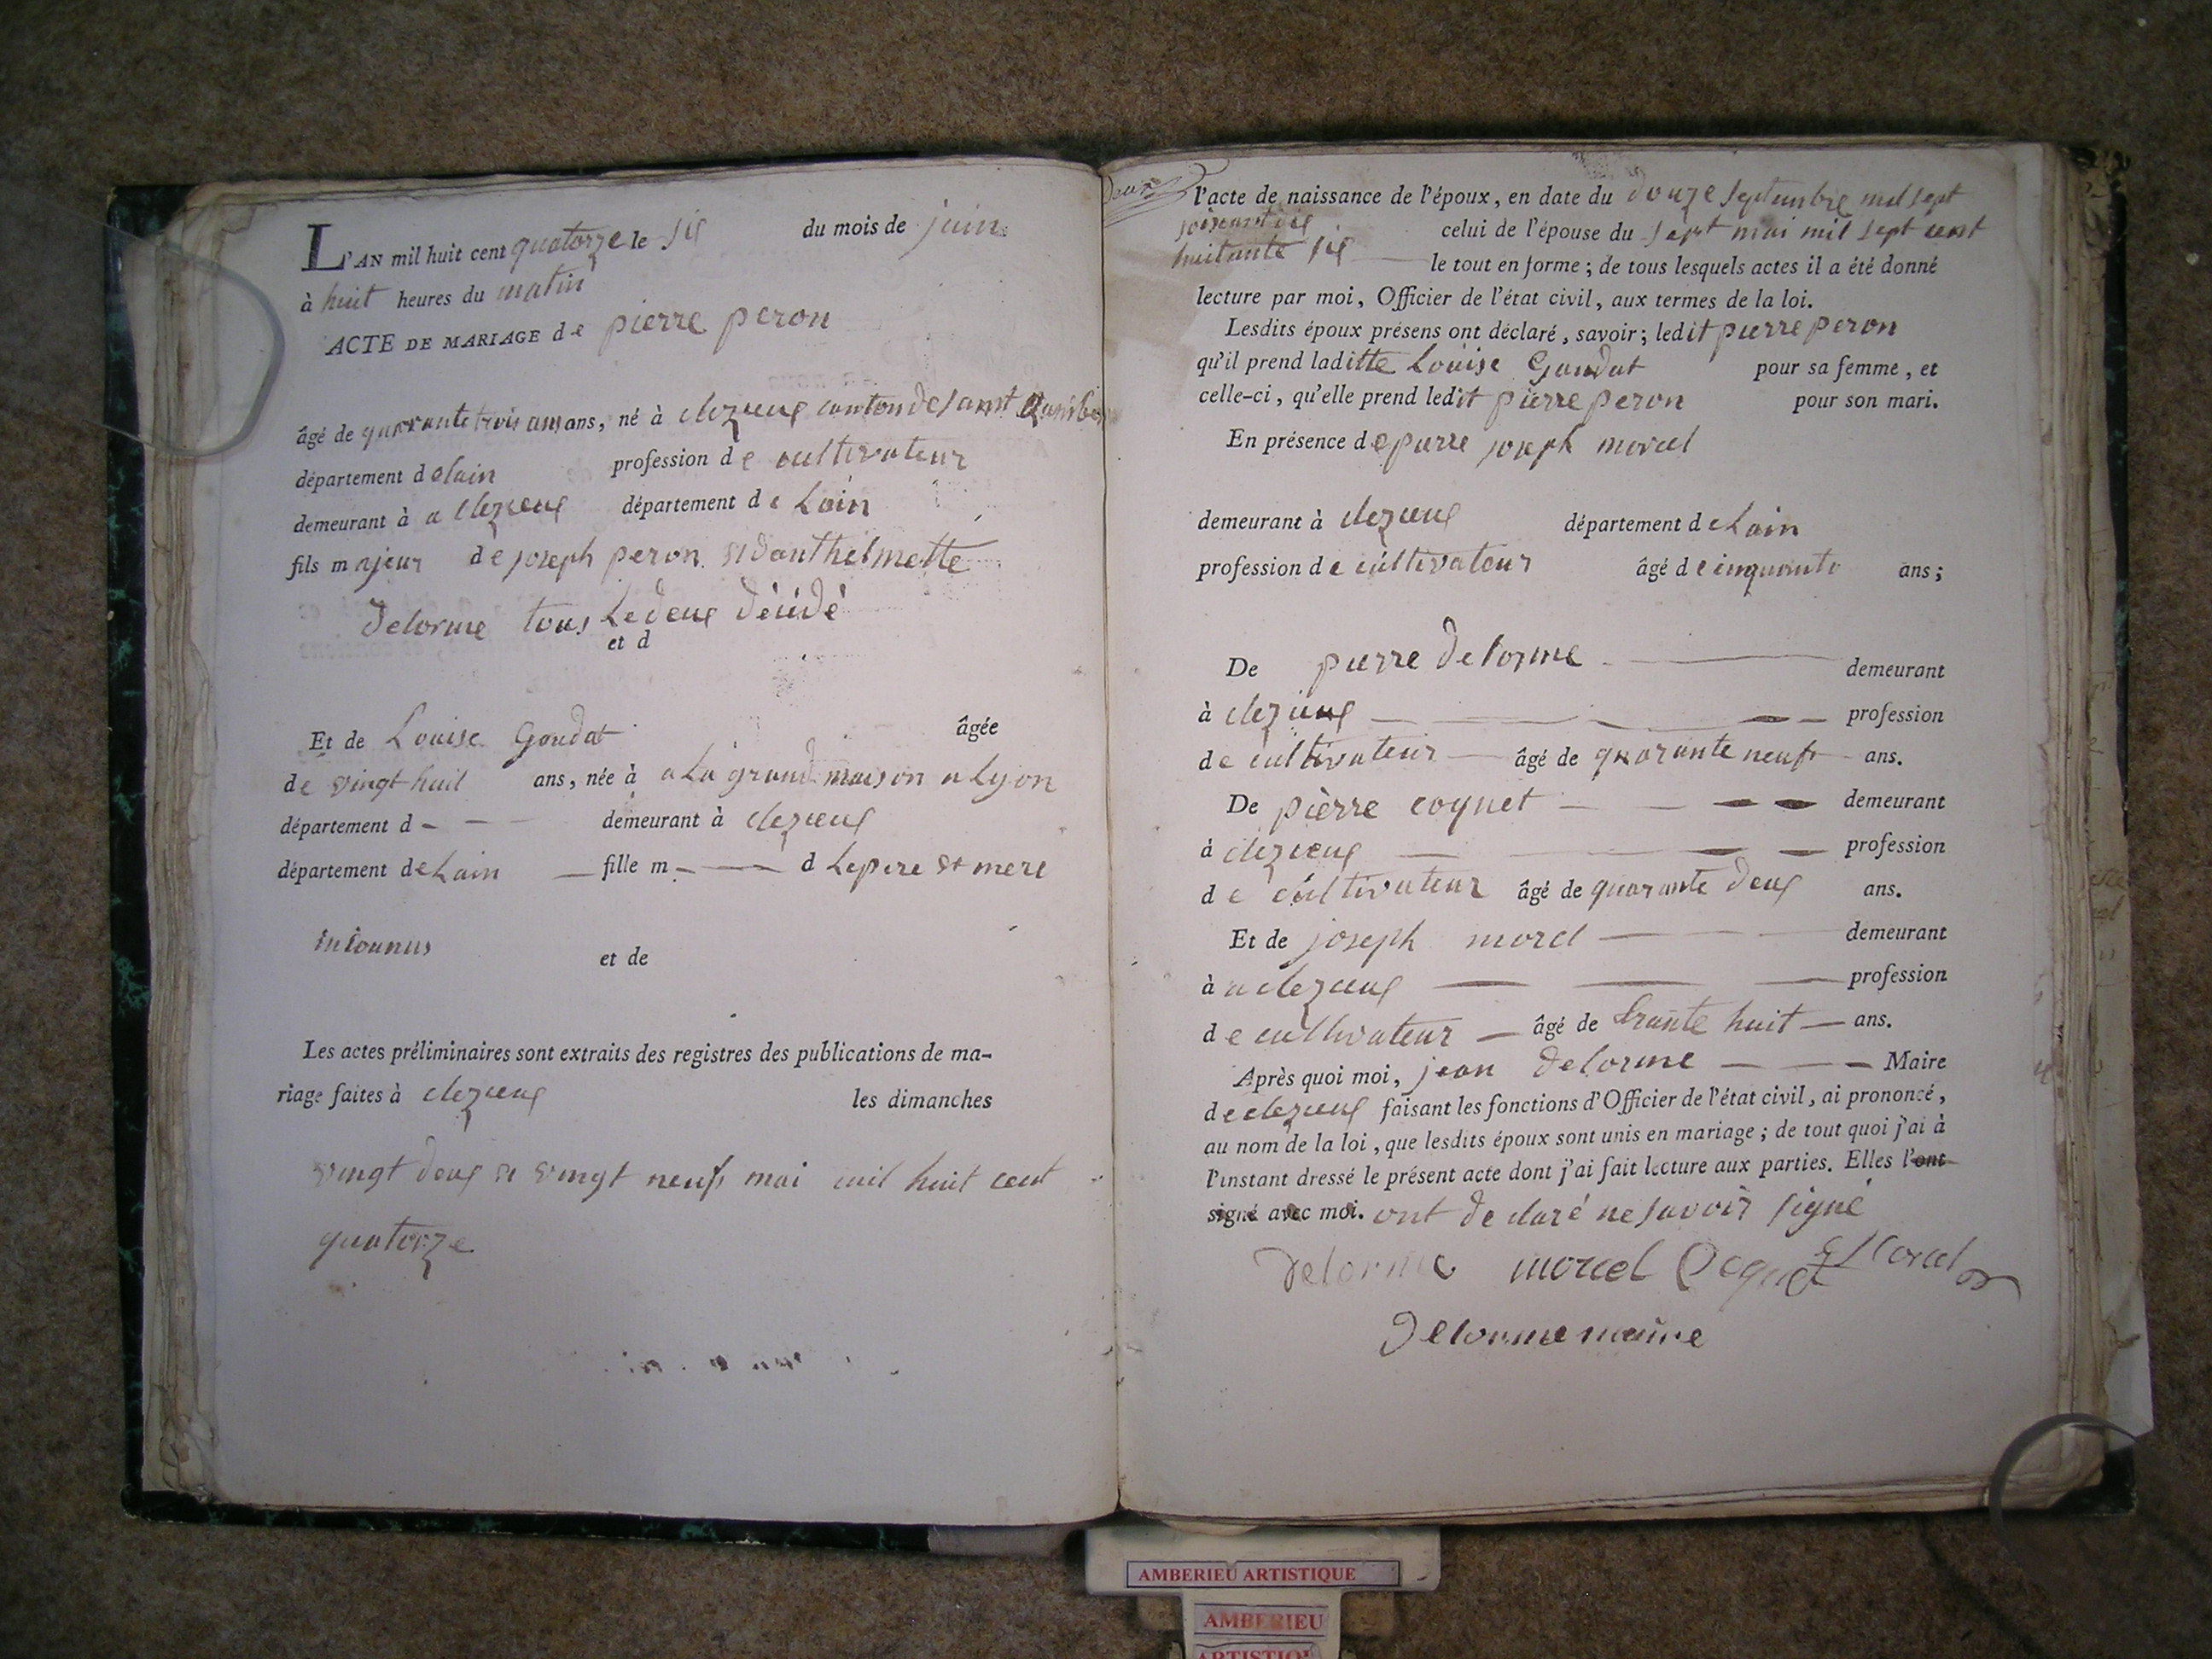 L'AN mil huit cent quatorze le six du mois de juin
à huit heures du matin
ACTE DE MARIAGE de pierre peron
âgé de quarante trois ans ans, né à clezieux canton de saint Rambert
département de lain profession de cultivateur
demeurant à a clezieux département de Lain
fils majeur de joseph peron et danthelmette
Delorme tous Le deux décédé
et d
Et de Louise Goudat âgée
de vingt huit ans, née à a La grand maison a Lyon
département d - - - demeurant à clezieux
département de Lain — fille m — — d Le pere et mere
inconnus
et de
Les actes préliminaires sont extraits des registres des publications de ma-
riage faites à clezieux les dimanches
vingt deux et vingt neuf mai mil huit cent
quatorze
deux
l'acte de naissance de l'époux, en date du douze septembre mil sept
celui de l'épouse du sept mai mil sept cent
huitante six — le tout en forme ; de tous lesquels actes il a été donné
lecture par moi, Officier de l'état civil, aux termes de la loi.
Lesdits époux présens ont déclaré, savoir ; ledit pierre peron
qu'il prend laditte Louise Goudat pour sa femme, et
celle-ci, qu'elle prend ledit pierre peron pour son mari.
En présence de pierre joseph morel
demeurant à clezieux département de Lain
profession de cultivateur âgé de cinquante ans ;
De pierre delorme — demeurant
à clezieux — — — — profession
de cultivateur — âgé de quarante neuf — ans.
De pierre coqnet — — — — demeurant
à clezieux — — — — profession
de cultivateur âgé de quarante deux ans.
Et de joseph morel — — — demeurant
à a clezieux — — — profession
de cultivateur — âgé de trante huit — ans.
Après quoi moi, jean delorme — — — Maire
de clezieux faisant les fonctions d'Officier de l'état civil, ai prononcé,
au nom de la loi, que lesdits époux sont unis en mariage ; de tout quoi j'ai à
l'instant dressé le présent acte dont j'ai fait lecture aux parties. Elles l'ont
signé avec moi. ont declaré ne savoir signé
Delorme morel Coquet
Delorme maire
AMBERIEU ARTISTIQUE
AMBERIEU
ARTISTIQUE